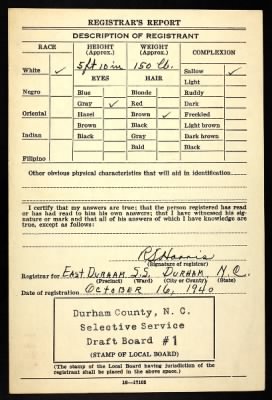 REGISTRAR'S REPORT
DESCRIPTION OF REGISTRANT
RACE HEIGHT (Approx.) WEIGHT (Approx.) COMPLEXION
White ✓ 5 ft 10 in 150 lb. Sallow ✓
EYES HAIR Light
Negro Blue Blonde Ruddy
Gray ✓ Red Dark
Oriental Hazel Brown ✓ Freckled
Brown Black Light brown
Indian Black Gray Dark brown
Bald Black
Filipino
Other obvious physical characteristics that will aid in identification
I certify that my answers are true; that the person registered has read
or has had read to him his own answers; that I have witnessed his sig-
nature or mark and that all of his answers of which I have knowledge
are true, except as follows:
R S Harris
(Signature of registrar)
Registrar for EAST DURHAM S.S. DURHAM, N.C.
(Precinct) (Ward) (City or County) (State)
Date of registration OCTOBER 16, 1940
Durham County, N. C.
Selective Service
Draft Board #1
(STAMP OF LOCAL BOARD)
(The stamp of the Local Board having jurisdiction of the
registrant shall be placed in the above space.)
16—17105